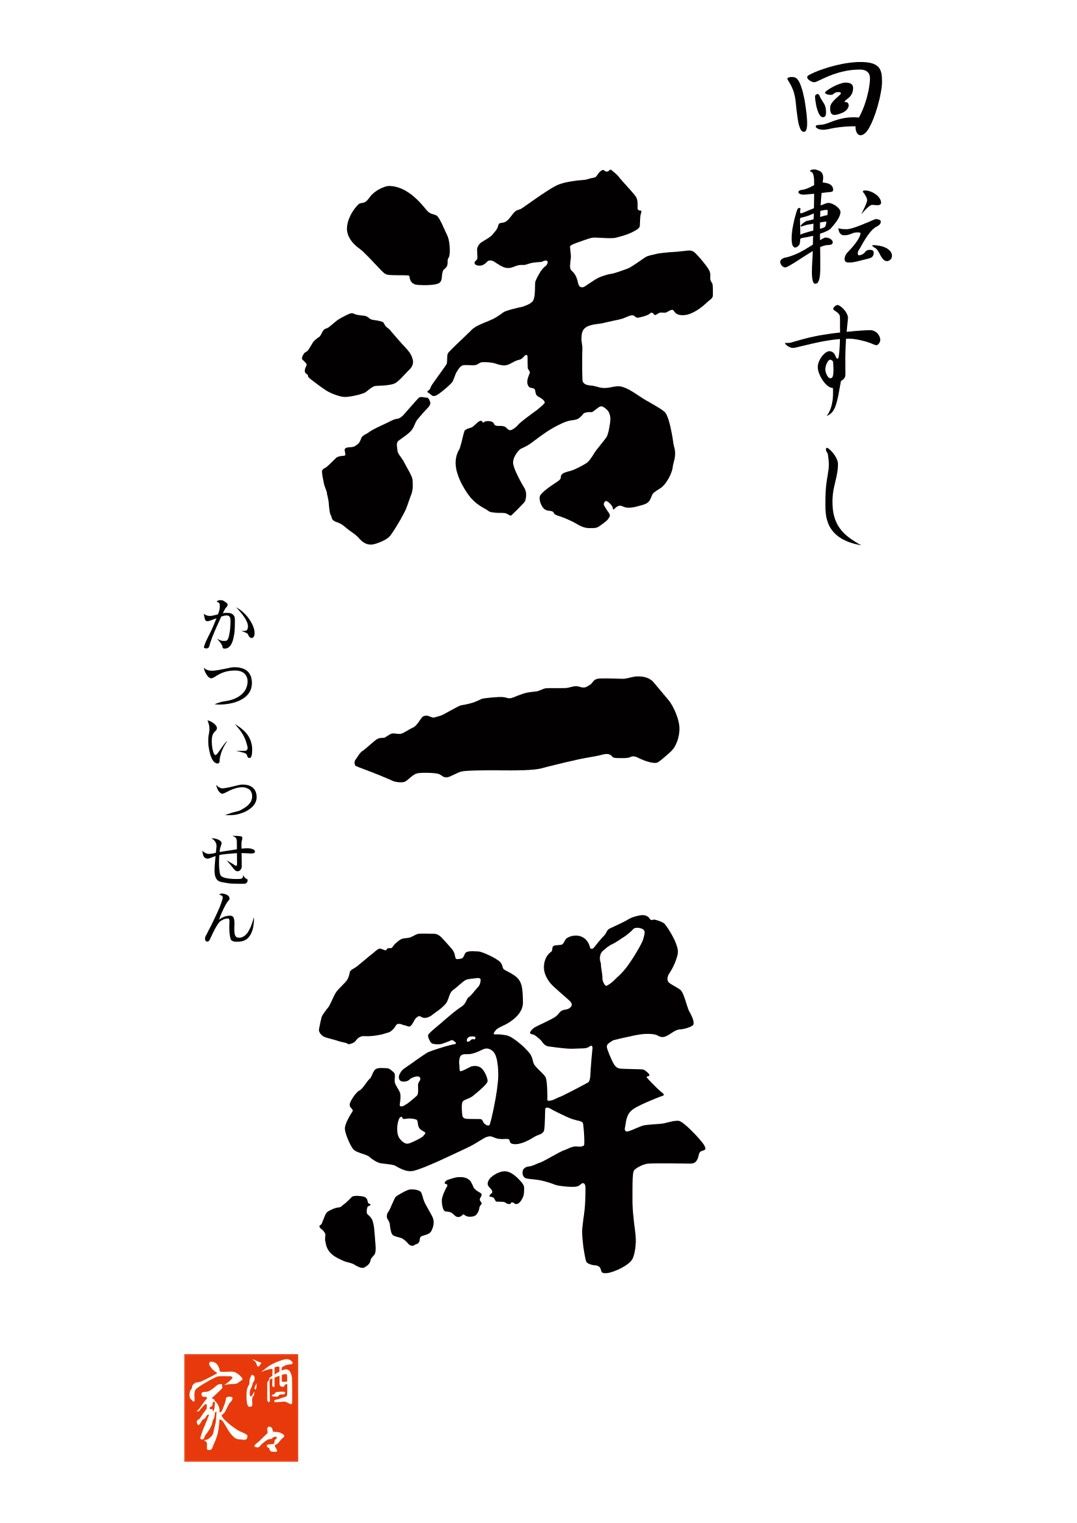 回転すし
活一鮮
かついっせん
酒々
家